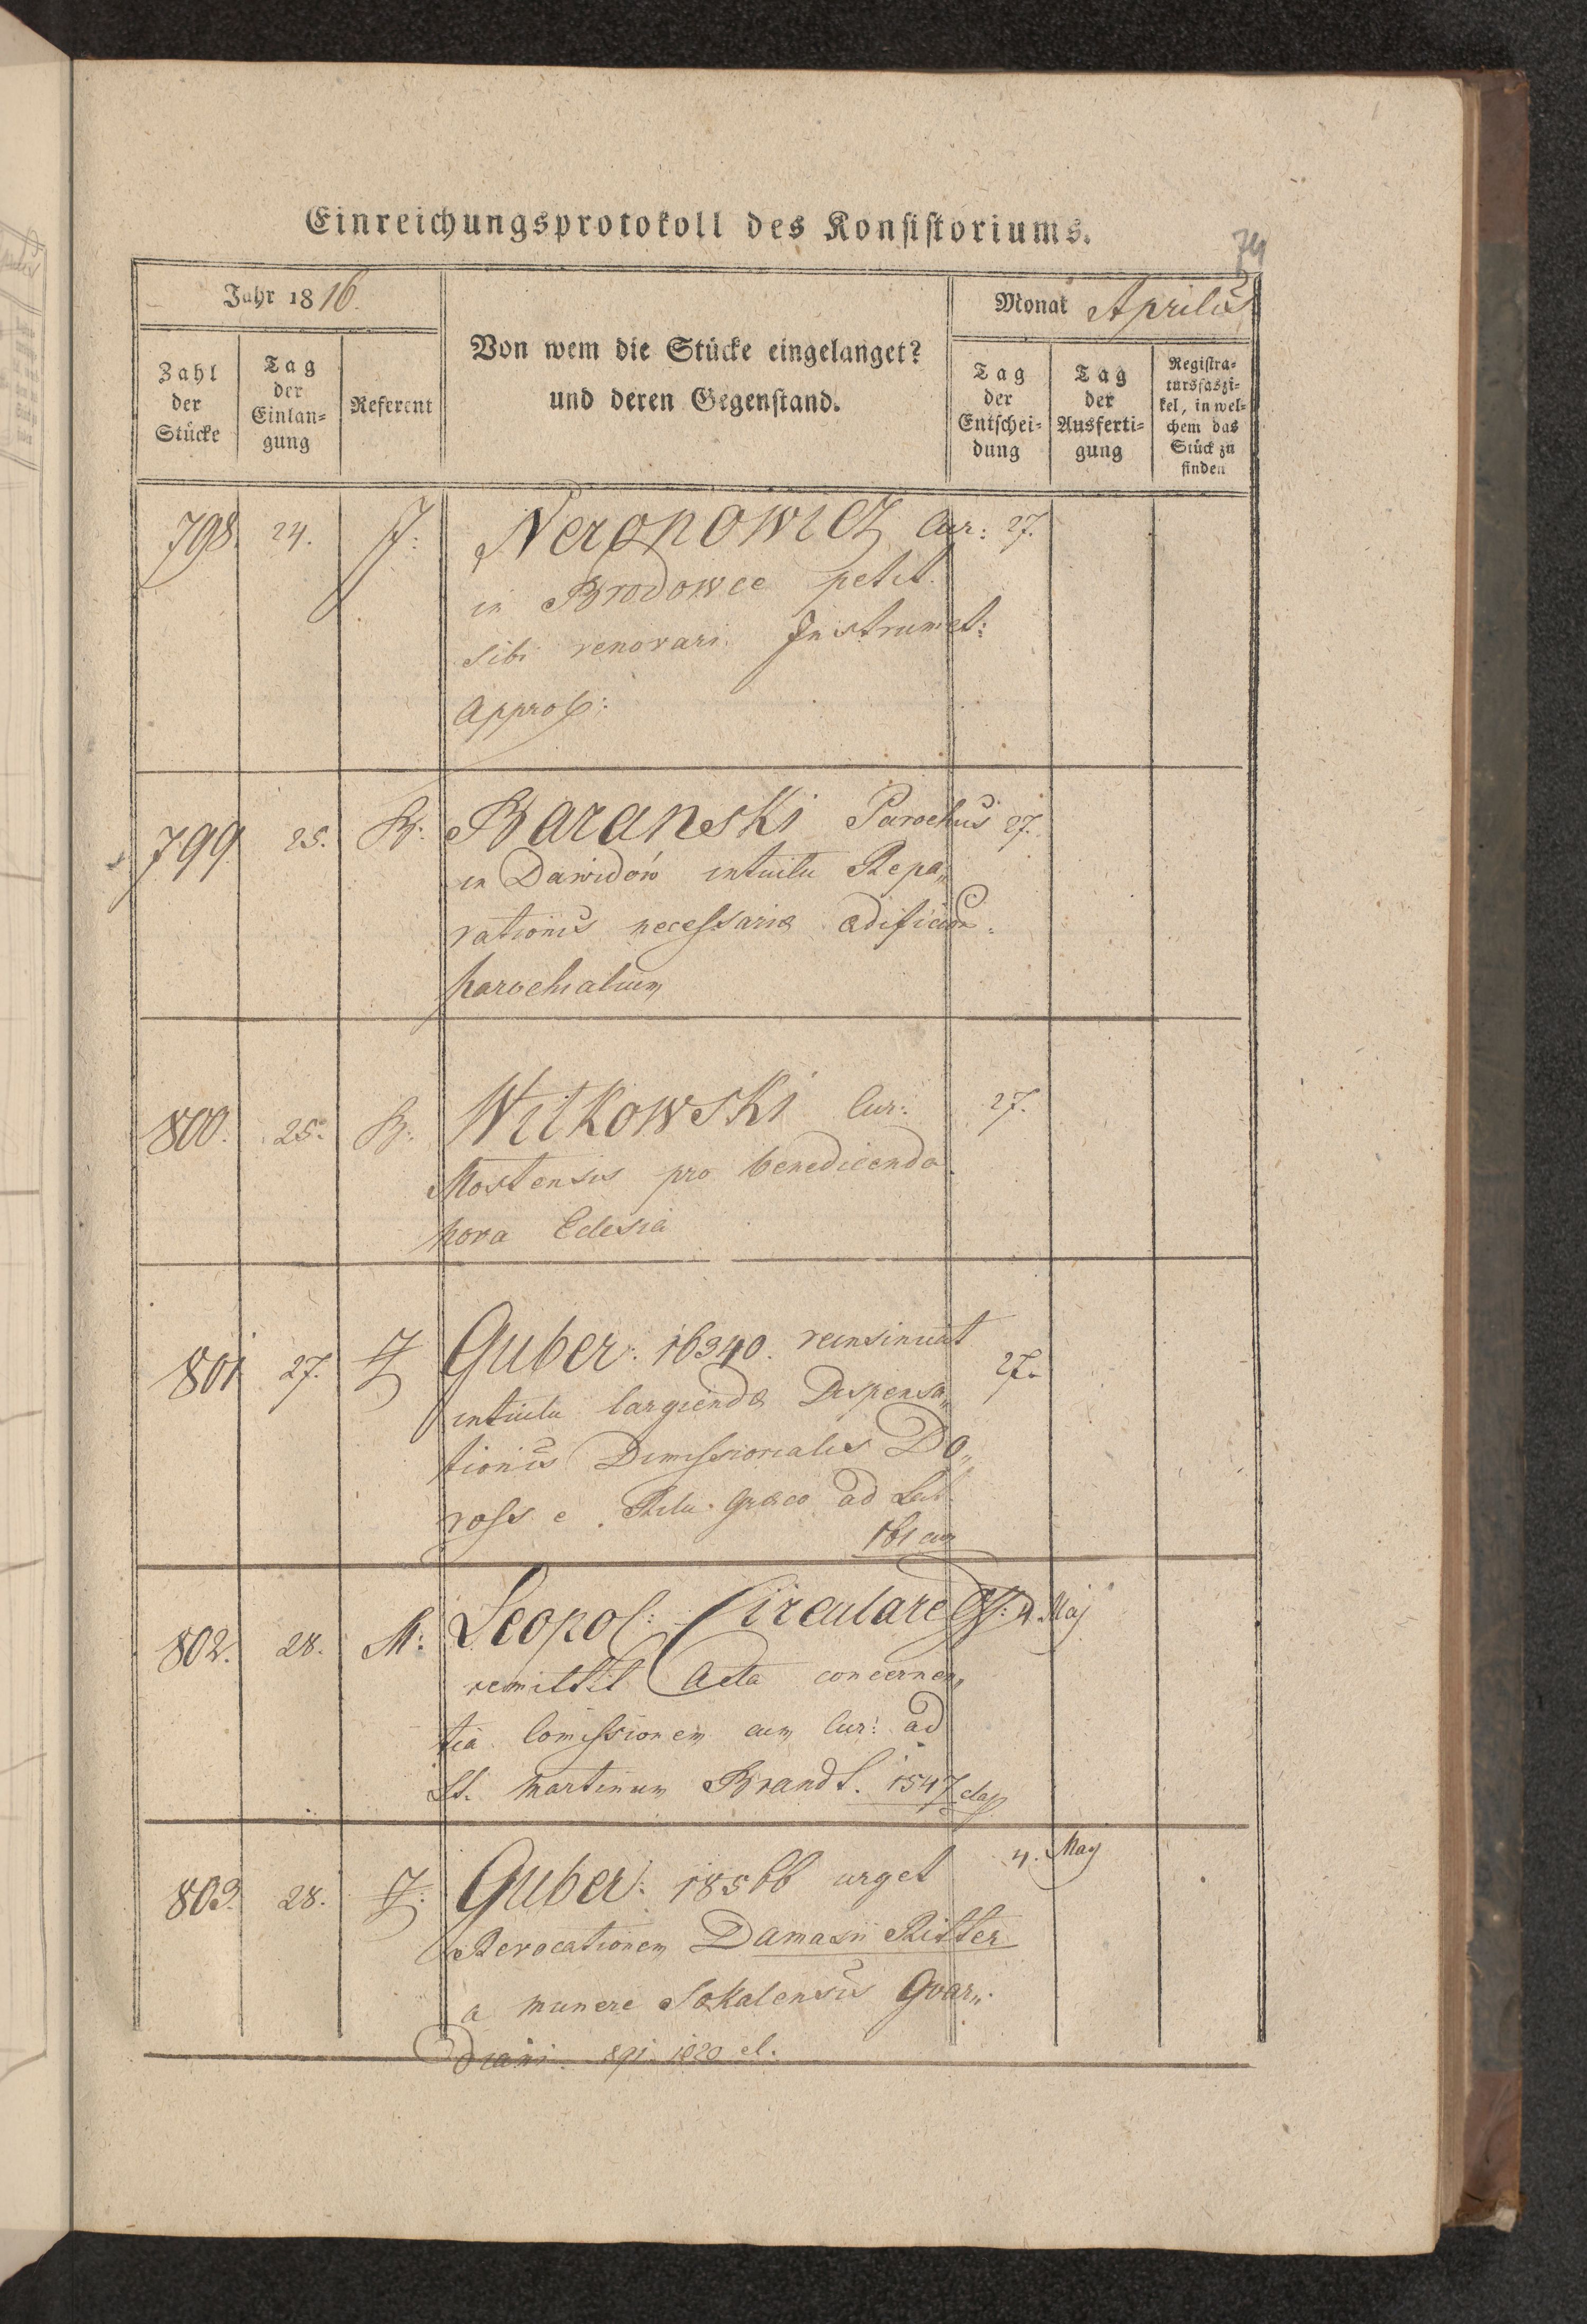 Einreichungsprotokoll des Konsistoriums.
74
Jahr 1816.
Von wem die Stücke eingelanget?
und deren Gegenstand.
Monat Aprilis
Zahl
der
Stücke
Tag
der
Einlan=
gung
Referent
Tag
der
Entschei=
dung
Tag
der
Ausferti=
gung
Registra=
tursfaszi=
kel, in wel=
chem das
Stück zu
finden
798. 24. J: Neronowicz Cur: 27.
in Brodowce petit
sibi renovari Instrumet:
Approb:
799. 25. B: Baranski Parochus 27.
in Dawidow intuitu Repa„
rationis necessariæ ædificior.
parochialium
800. 25. B: Witkowski Cur: 27.
Mostensis pro benedicenda
nova Eclesia
801 27. Guber: 16340. reinsinuat 27.
intuitu largienda Dispensa„
tionis Dimissorialis Do„
ross e Ritu Græco ad Lat.
802. 28. M: Leopol: Circulare 4. Maj
remittit Acta concernen„
tia Comissionem cum Cur: ad
St. Martinum Brandt. 1547
803. 28. Guber: 18566 urget 4. May
Revocationem Damasii Ritter
a munere Sokalensis Guar„
diani